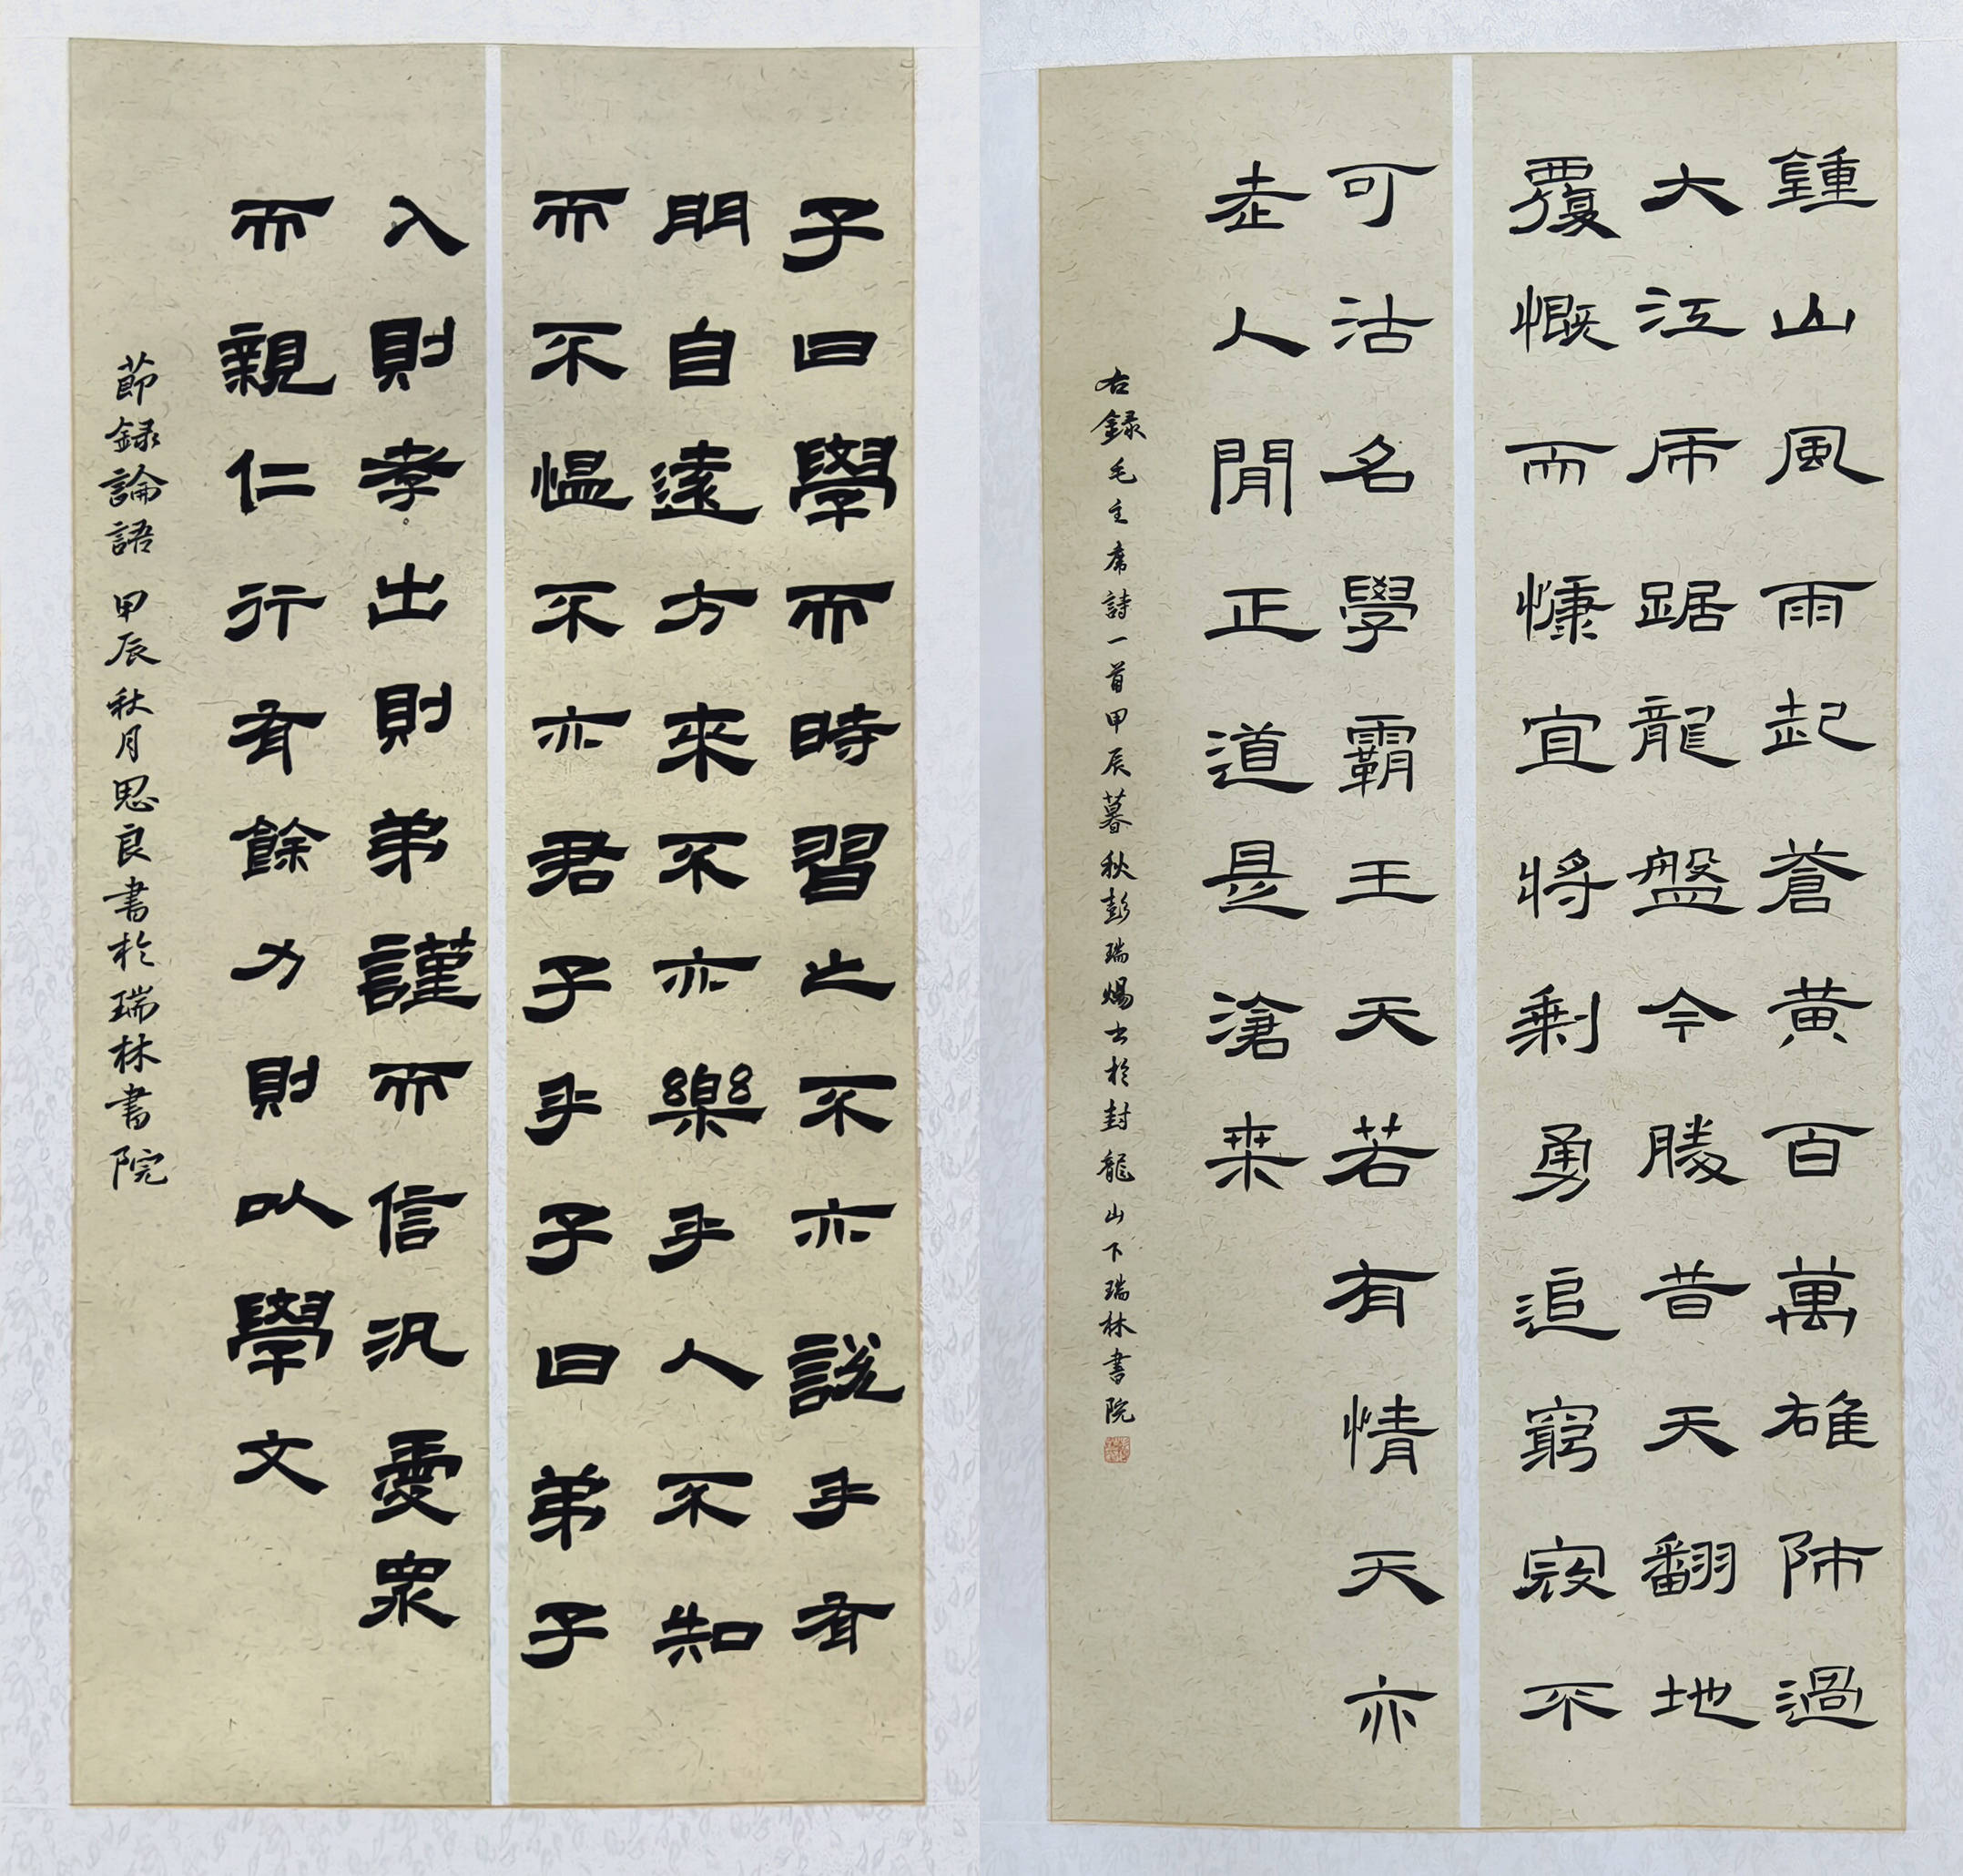 鍾山風雨起蒼黃百萬雄師過
大江虎踞龍盤今勝昔天翻地
覆慨而慷宜將剩勇追窮寇不
可沽名學霸王天若有情天亦
老人閒正道是滄桑
右録毛主席詩一首甲辰暮秋彭瑞煬书於封龍山下瑞林書院
子曰學而時習之不亦說乎有
朋自遠方來不亦樂乎人不知
而不愠不亦君子乎子曰弟子
入則孝出則弟謹而信汎愛眾
而親仁行有餘力則以學文
節録論語 甲辰秋月思良書於瑞林書院